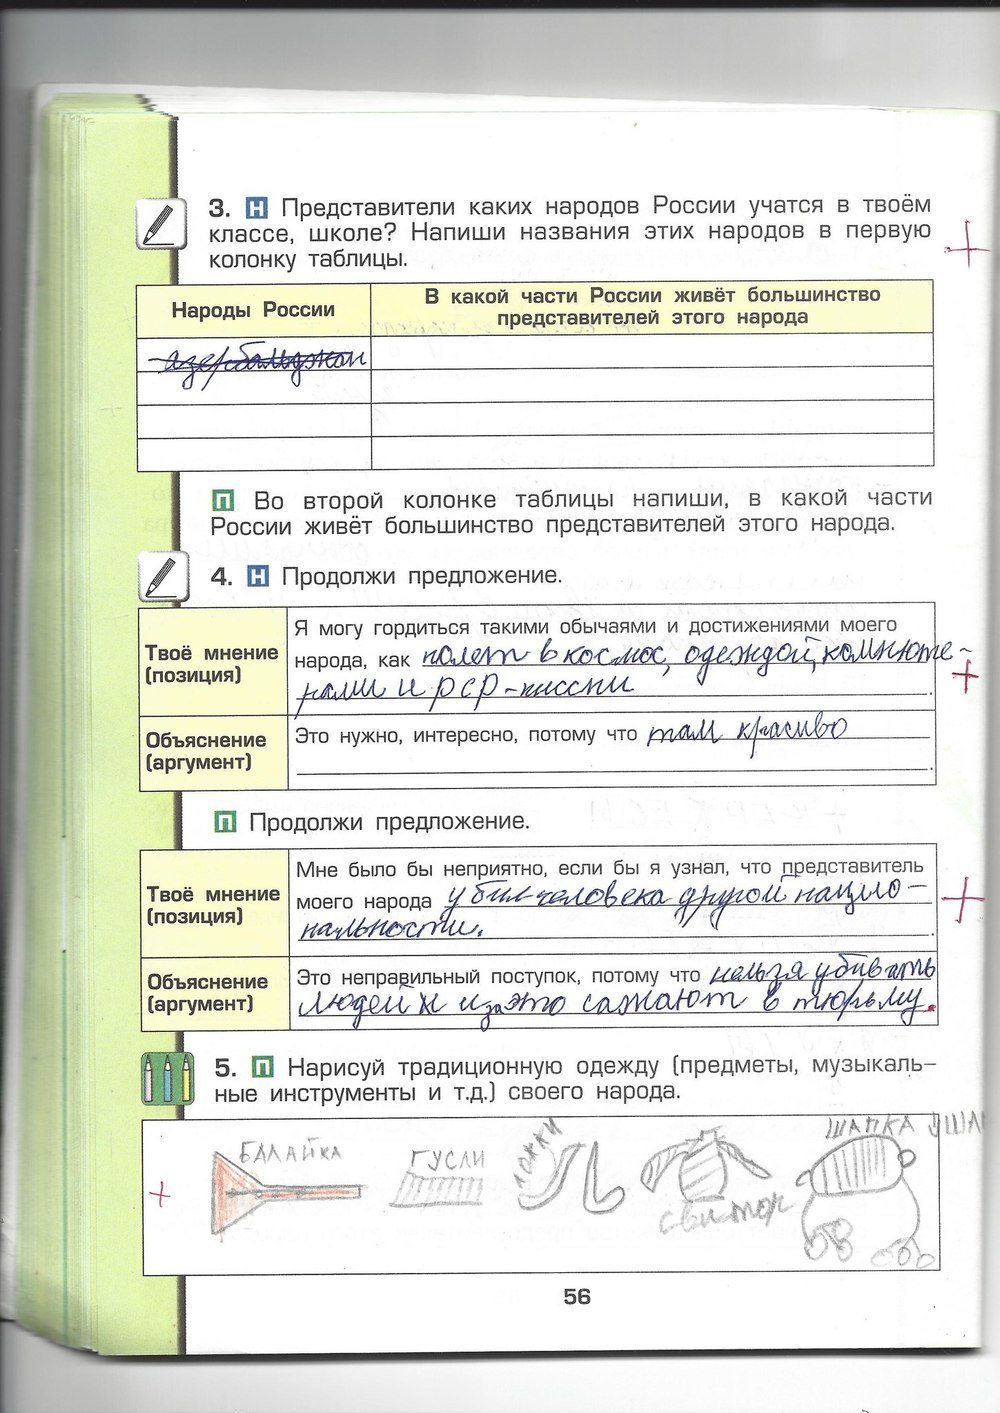 3. Н Представители каких народов России учатся в твоём
классе, школе? Напиши названия этих народов в первую
колонку таблицы.
Народы России
В какой части России живёт большинство
представителей этого народа
азербайджан
П Во второй колонке таблицы напиши, в какой части
России живёт большинство представителей этого народа.
4. Н Продолжи предложение.
Твоё мнение
(позиция)
Я могу гордиться такими обычаями и достижениями моего
народа, как полет в космос, одеждой, компюте-
рами и
Объяснение
(аргумент)
Это нужно, интересно, потому что там красиво
П Продолжи предложение.
Твоё мнение
(позиция)
Мне было бы неприятно, если бы я узнал, что представитель
моего народа убил человека другой нацио-
нальности.
Объяснение
(аргумент)
Это неправильный поступок, потому что нельзя убивать
людей и за это сажают в тюрьму.
5. П Нарисуй традиционную одежду (предметы, музыкаль-
ные инструменты и т.д.) своего народа.
БАЛАЙКА
ГУСЛИ
ЛОЖКИ
свитор
ШАПКА УША
56